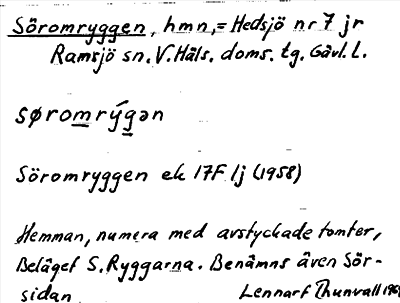 Söromryggen, hmn, = Hedsjö nr 7 jr
Ramsjö sn. V. Häls. doms. tg. Gävl. L.
søromrýgən
Söromryggen ek 17F 1j (1958)
Hemman, numera med avstyckade tomter,
Beläget S. Ryggarna. Benämns även Sör-
sidan Lennart Thunvall